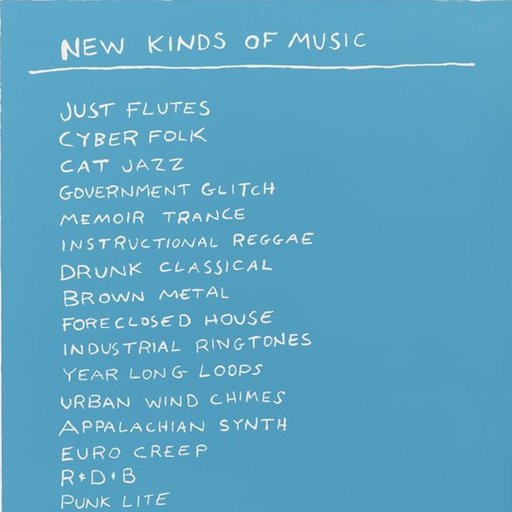 NEW KINDS OF MUSIC
JUST FLUTES
CYBER FOLK
CAT JAZZ
GOVERNMENT GLITCH
MEMOIR TRANCE
INSTRUCTIONAL REGGAE
DRUNK CLASSICAL
BROWN METAL
FORECLOSED HOUSE
INDUSTRIAL RINGTONES
YEAR LONG LOOPS
URBAN WIND CHIMES
APPALACHIAN SYNTH
EURO CREEP
R+D+B
PUNK LITE